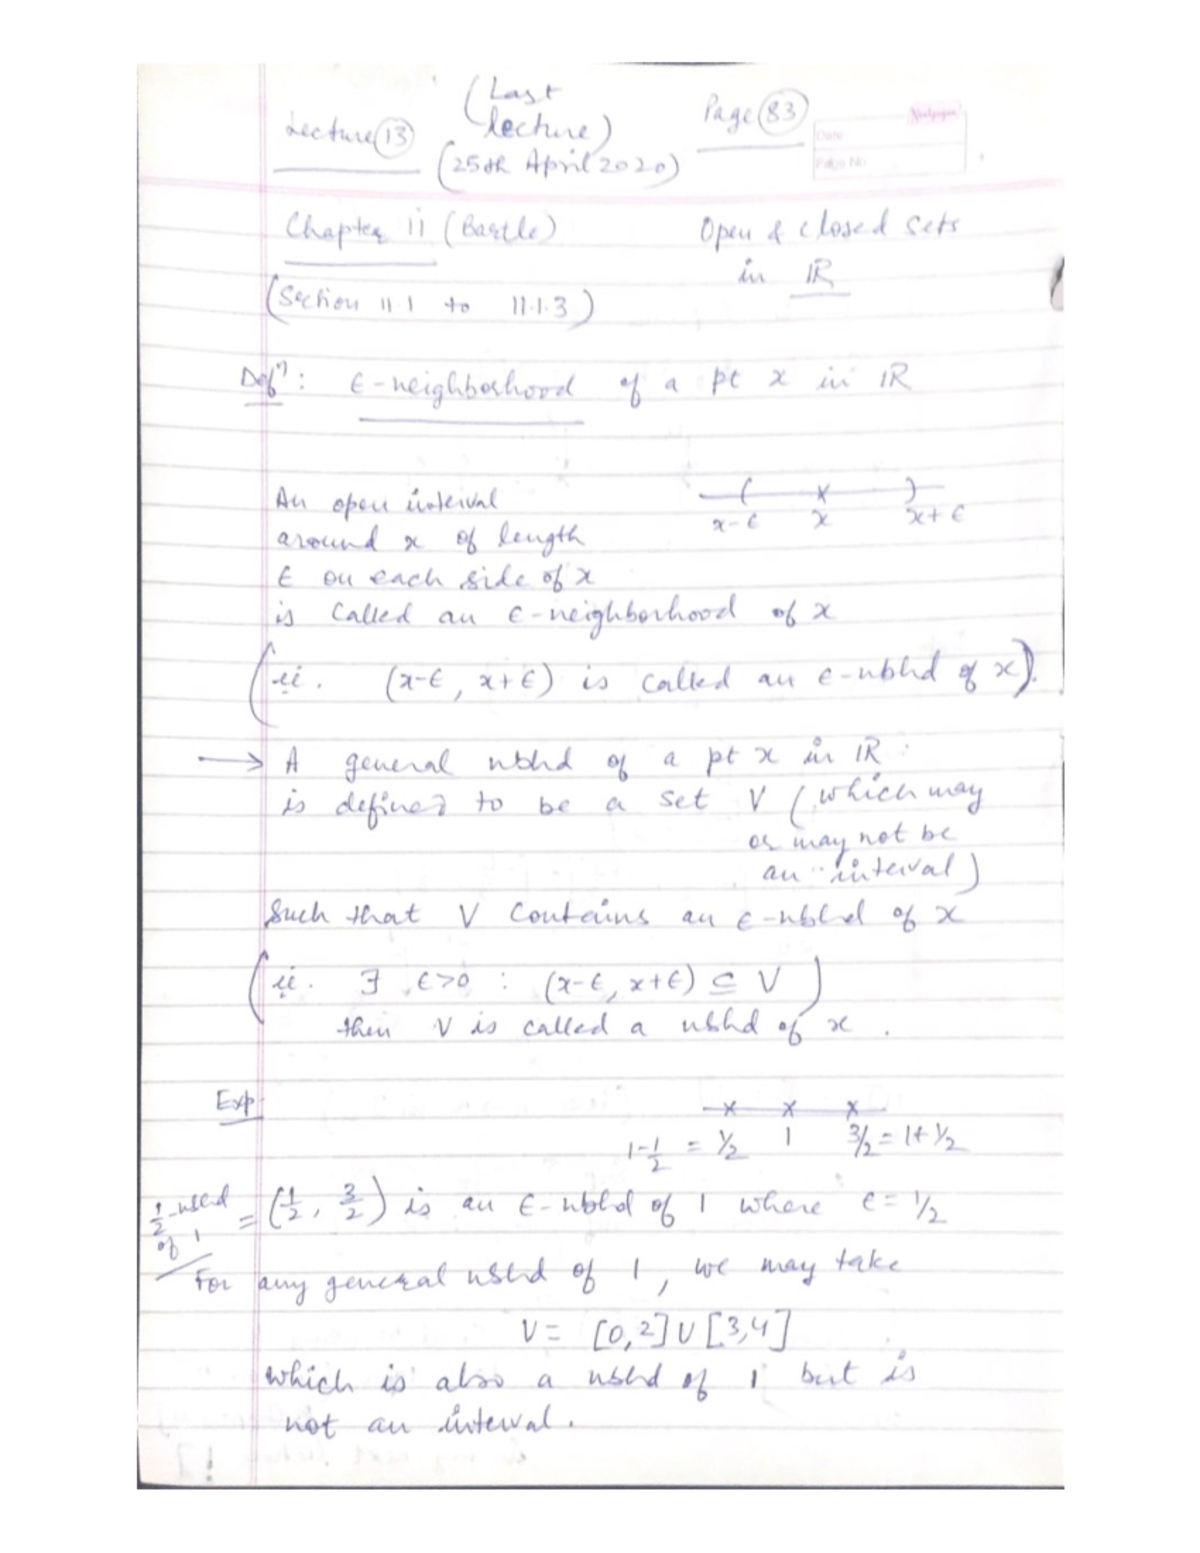 (Last
Lecture (13) lecture) Page (83)
(25th April 2020)
Neelgagan
Date
Page No
Chapter 11 (Bartle) Open & closed sets
in ℝ
(Section 11.1 to 11.1.3)
Defⁿ: ϵ-neighborhood of a pt x in ℝ
An open interval
around x of length
ϵ on each side of x
x-ϵ x x+ϵ
is called an ϵ-neighborhood of x
(ie. (x-ϵ, x+ϵ) is called an ϵ-nbhd of x).
→ A general nbhd of a pt x in ℝ
is defined to be a set V (which may
or may not be
an interval)
Such that V contains an ϵ-nbhd of x
(ie. ∃ ϵ>0 : (x-ϵ, x+ϵ) ⊆ V)
then V is called a nbhd of x.
Exp
1-1/2 = 1/2 1 3/2 = 1+1/2
1/2-nbhd of 1 = (1/2, 3/2) is an ϵ-nbhd of 1 where ϵ = 1/2
For any general nbhd of 1, we may take
V = [0,2] ∪ [3,4]
which is also a nbhd of 1 but is
not an interval.